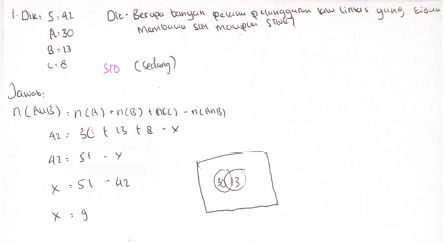 1. Dik: S: 42
A: 30
B: 13
C: 8
Dit: Berapa banyak pelaku pelanggaran lalu lintas yang tidak
membawa SIM maupun STNK?
S10 (sedang)
Jawab:
n(AUB) = n(A) + n(B) + n(C) - n(A∩B)
42 = 30 + 13 + 8 - x
42 = 51 - x
x = 51 - 42
x = 9
30 13